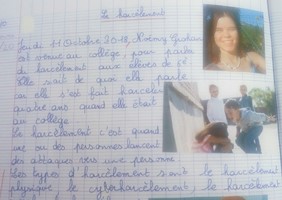 Le harcèlement
Jeudi 11 Octobre 2012, Noémy Graham
est venue au collège, pour parler
de harcèlement aux élèves de 6e
Elle sait de quoi elle parle
car elle s'est fait harceler
quatre ans quand elle était
au collège
Le harcèlement c'est quand
une ou des personnes lancent
des attaques vers une personne.
Les types d'harcèlement sont le harcèlement
physique, le cyberharcèlement, le harcèlement